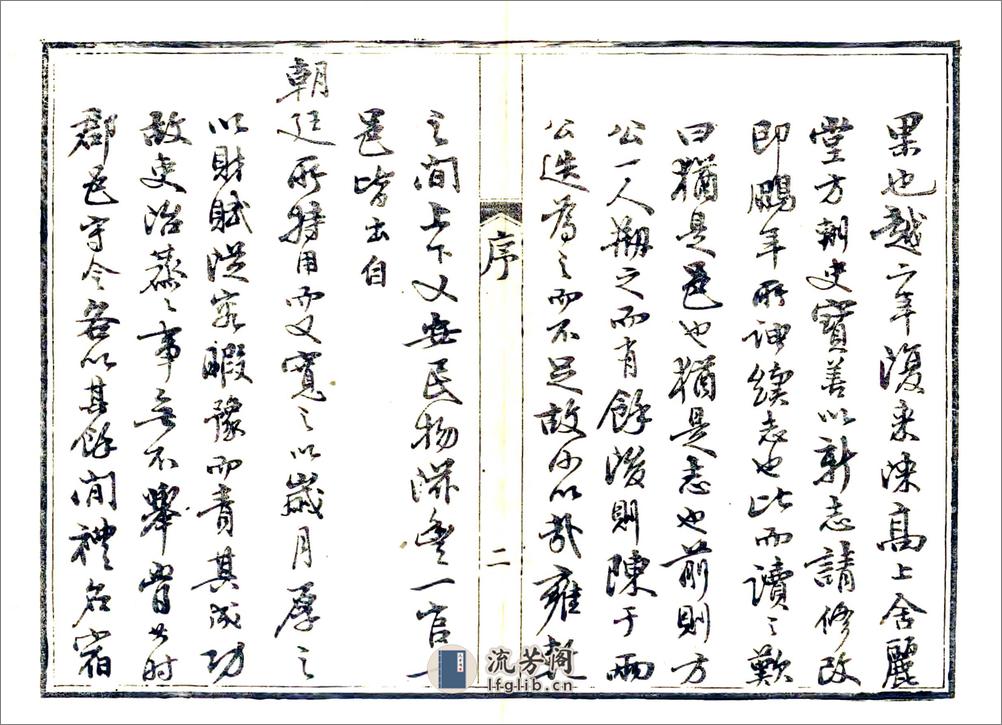 果也越六年復來涑高上舍麗
堂方朝史寶善以新志請修改
即鵬年所神續志也比而讀之歎
曰猶是邑也猶是志也前則方
公一人期之而有餘後則陳于兩
公迭為之而不足故以雍乾
序
二
之間上下乂安民物滋豐一官一
邑皆出自
朝廷所特用而又寬之以歲月厚之
以財賦從容暇豫而責其成功
故吏治蒸蒸事無不舉當其時
郡邑守令各以其餘閒禮名宿
流芳閣
lfglib.cn